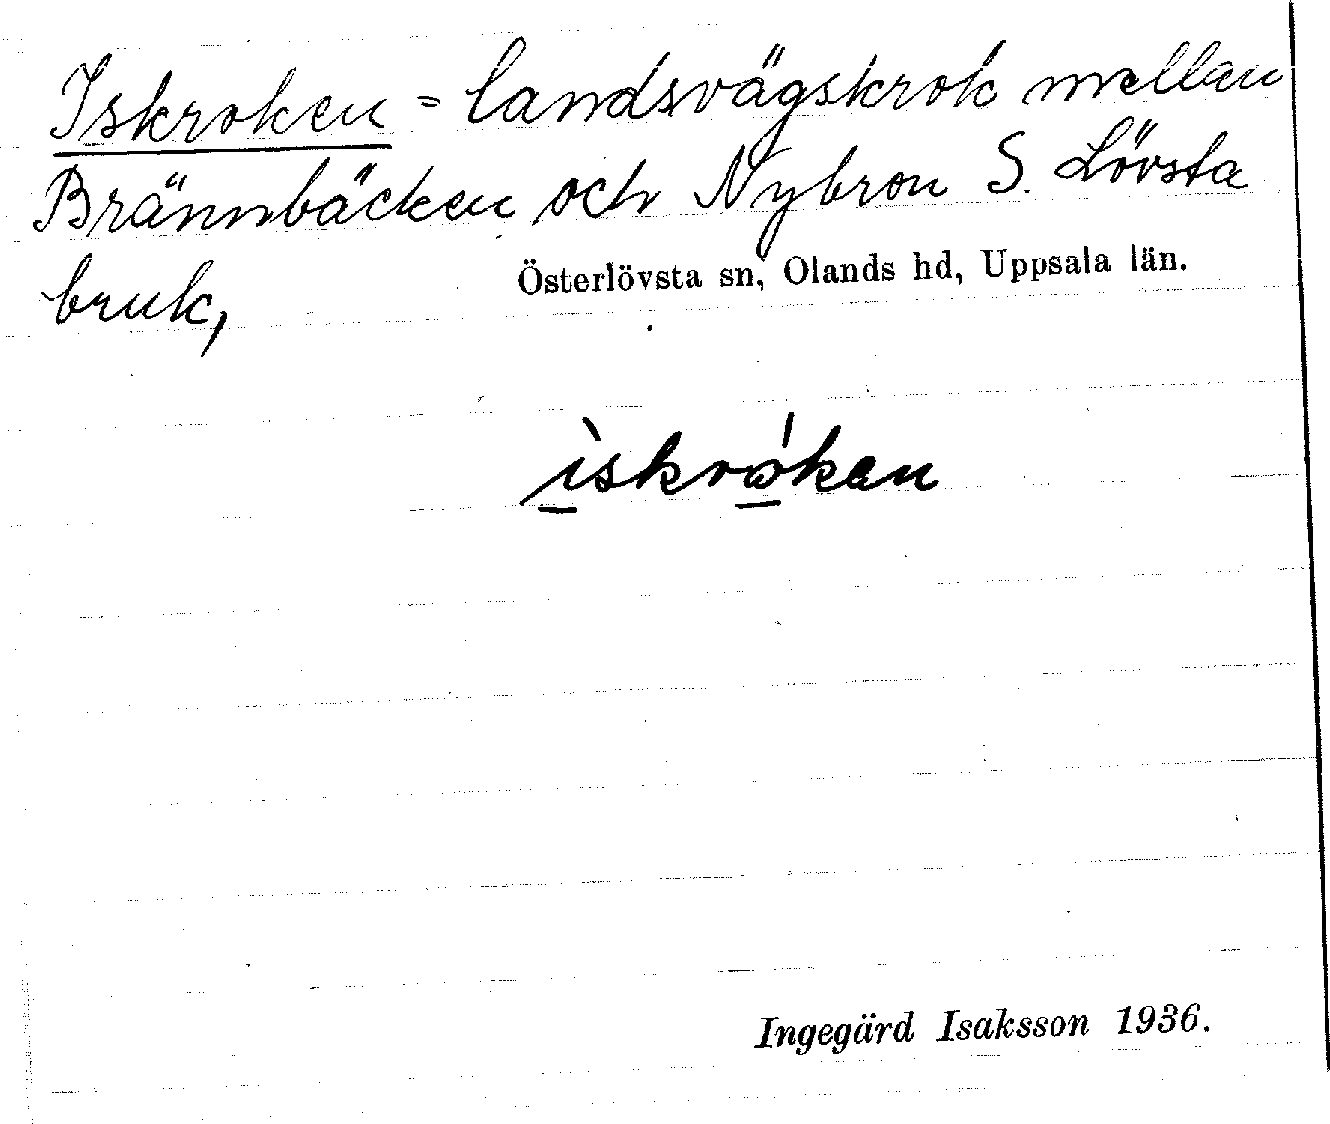 Iskroken = landsvägskrok mellan
Brännbäcken och Nybron S. Lövsta
bruk,
Österlövsta sn, Olands hd, Uppsala län.
ìskróken
Ingegärd Isaksson 1936.